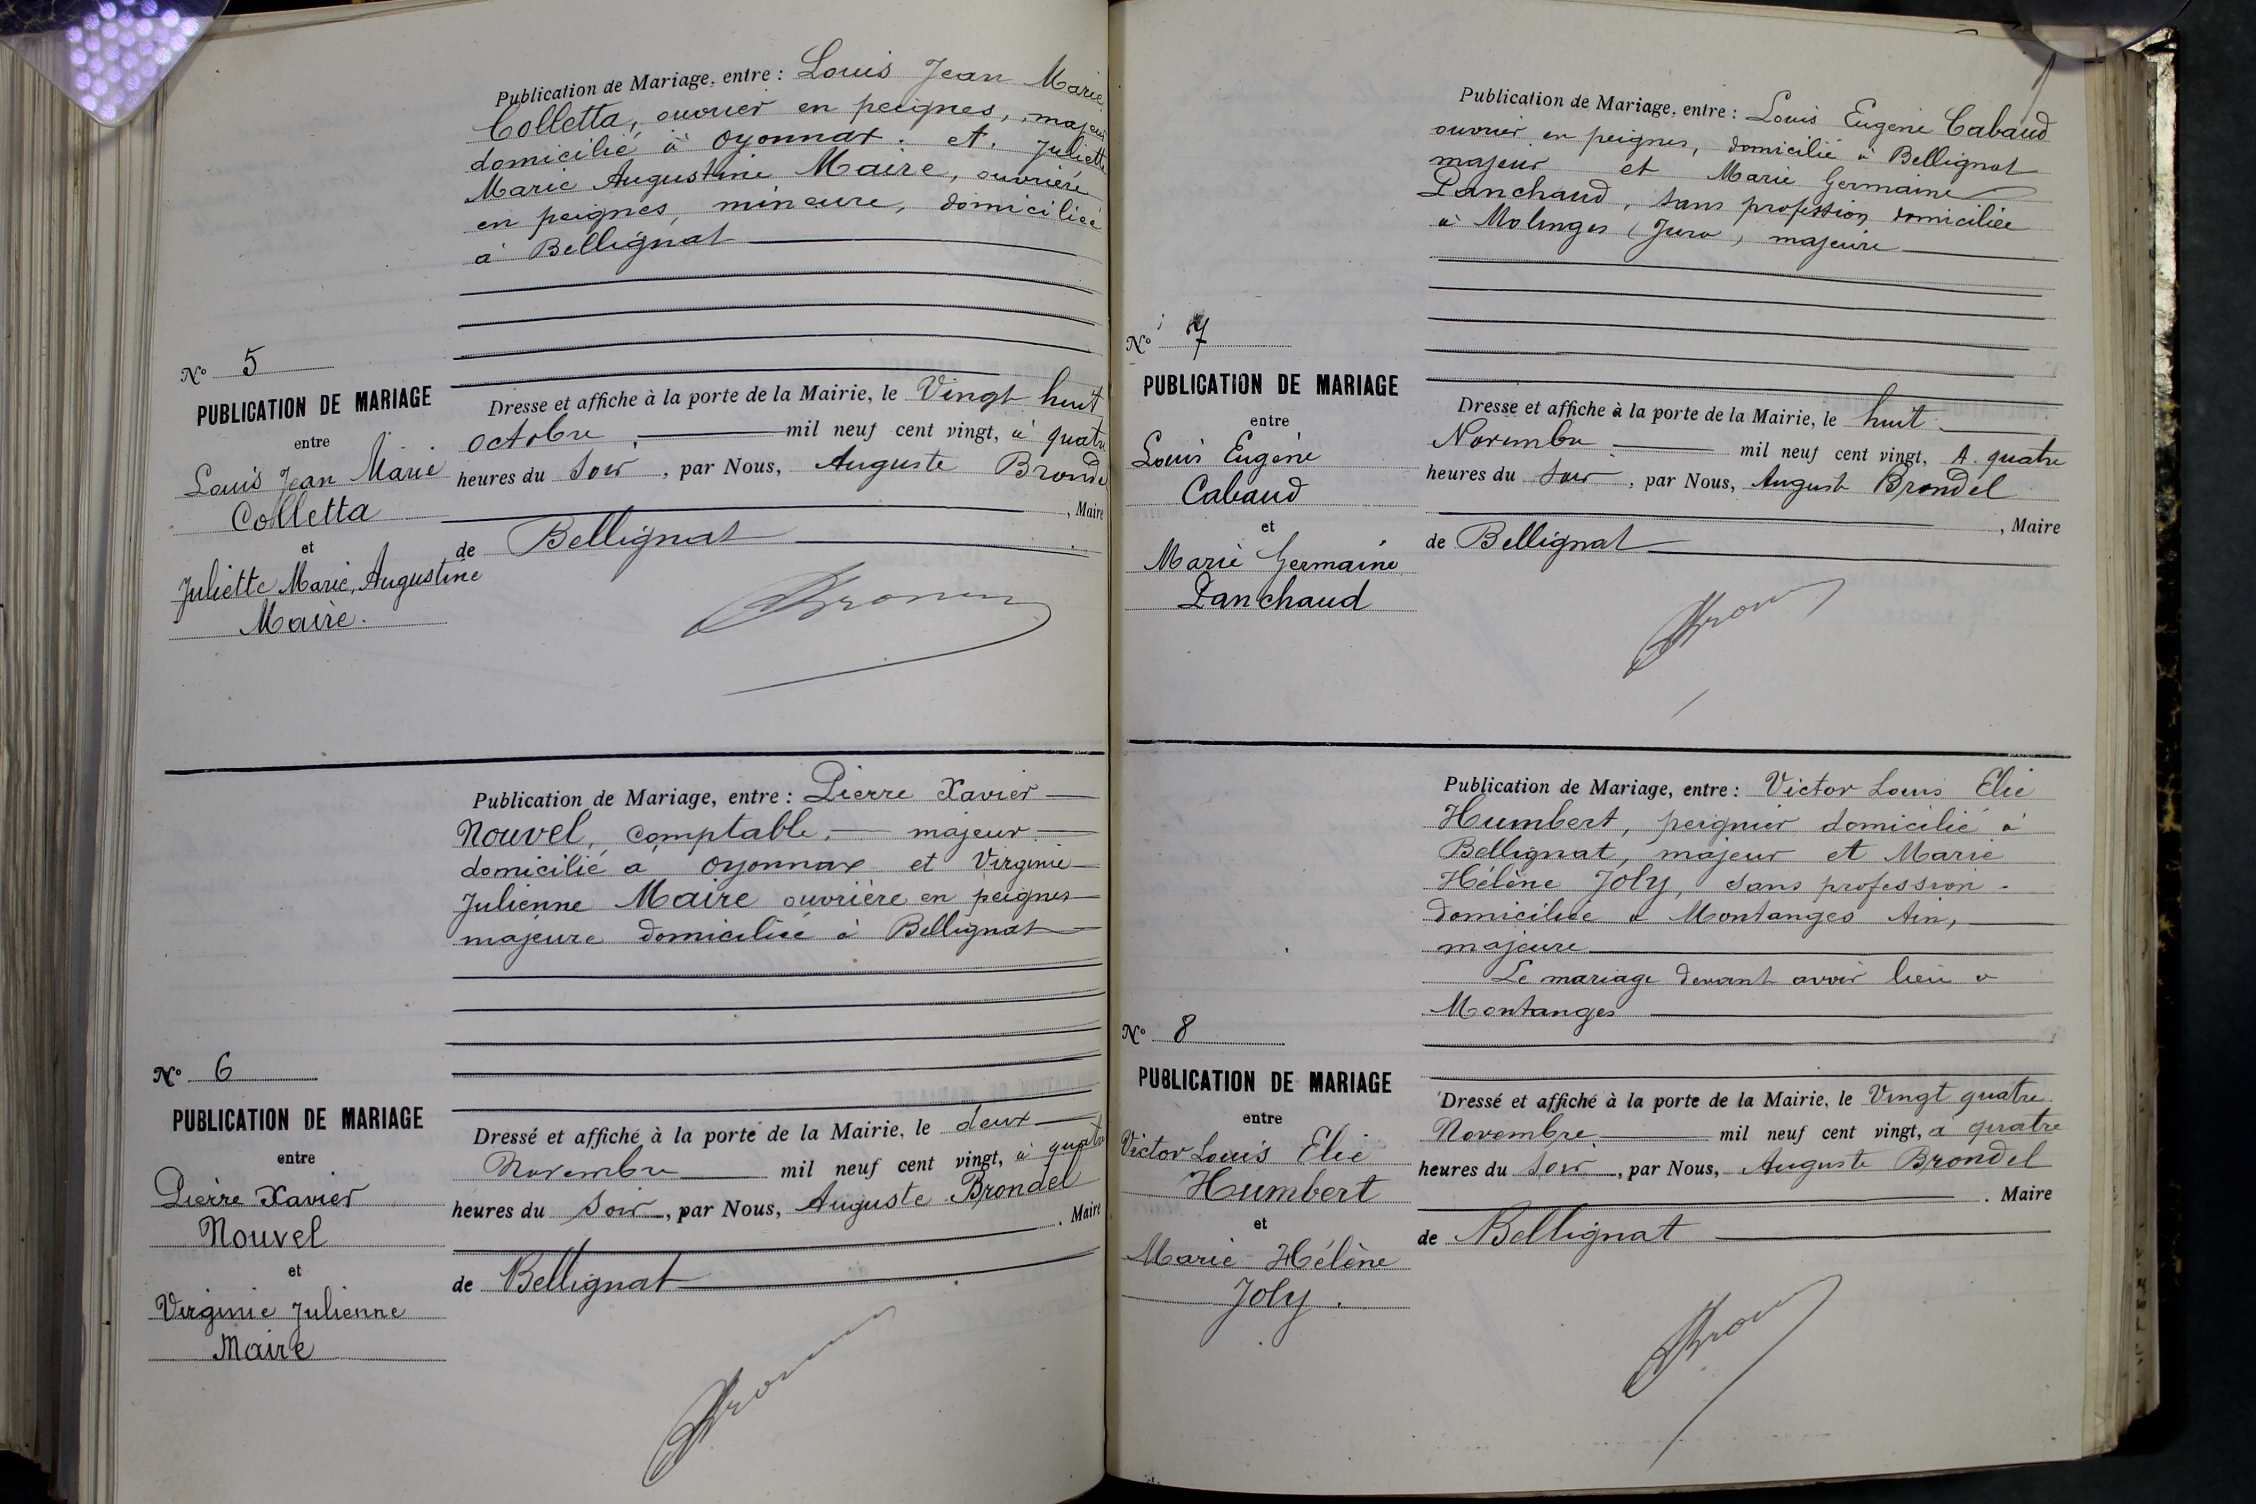 Publication de Mariage, entre : Louis Jean Marie
Colletta, ouvrier en peignes, majeur
domicilié à Oyonnax. et. Juliette
Marie Augustine Maire, ouvrière
en peignes, mineure, domiciliée
à Bellignat
N° 5
PUBLICATION DE MARIAGE
entre
Louis Jean Marie
Colletta
et
Juliette Marie, Augustine
Maire.
Dresse et affiche à la porte de la Mairie, le Vingt huit
octobre, mil neuf cent vingt, à quatre
heures du soir, par Nous, Auguste Bronde
, Maire
de Bellignat
Publication de Mariage, entre : Pierre Xavier
Nouvel, comptable, majeur
domicilié à Oyonnax et Virginie
Julienne Maire ouvrière en peignes
majeure domiciliée à Bellignat
N° 6
PUBLICATION DE MARIAGE
entre
Pierre Xavier
Nouvel
et
Virginie Julienne
Maire
Dressé et affiché à la porte de la Mairie, le deux
Novembre mil neuf cent vingt, à quatre
heures du soir, par Nous, Auguste Brondel
, Maire
de Bellignat
Publication de Mariage, entre : Louis Eugène Cabaud
ouvrier en peignes, domicilié à Bellignat
majeur et Marie Germaine
Panchaud, sans profession, domiciliée
à Molinges (Jura, majeure
N° 7
PUBLICATION DE MARIAGE
entre
Louis Eugène
Cabaud
et
Marie Germaine
Panchaud
Dresse et affiche à la porte de la Mairie, le huit
Novembre mil neuf cent vingt, A. quatre
heures du soir, par Nous, Auguste Brondel
, Maire
de Bellignat
Publication de Mariage, entre : Victor Louis Elie
Humbert, peignier domicilié à
Bellignat, majeur et Marie
Hélène Joly, sans profession
domiciliée à Montanges Ain,
majeure
Le mariage devant avoir lieu à
Montanges
N° 8
PUBLICATION DE MARIAGE
entre
Victor Louis Elie
Humbert
et
Marie-Hélène
Joly.
Dressé et affiché à la porte de la Mairie, le Vingt quatre
Novembre, mil neuf cent vingt, à quatre
heures du soir, par Nous, Auguste Brondel
. Maire
de Bellignat